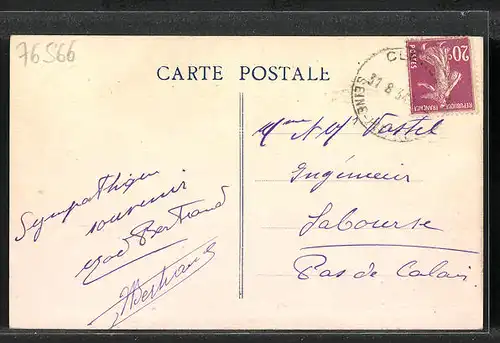 76566
CARTE POSTALE
31 8 34
SEINE
20c
POSTES
REPUBLIQUE FRANÇAISE
Sympathique
souvenir
Bertrand
Bertrand
Vastel
Ingénieur
Labourse
Pas de Calais